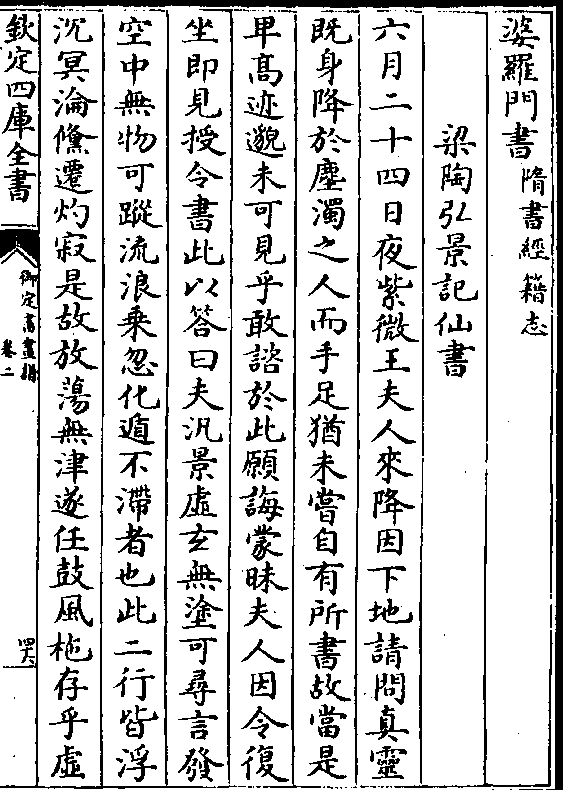 婆羅門書隋書經籍志
梁陶弘景記仙書
六月二十四日夜紫微王夫人來降因下地請問真靈
既身降於塵濁之人而手足猶未嘗自有所書故當是
卑髙迹邈未可見乎敢諮於此願誨蒙昧夫人因令復
坐即見授令書此以答曰夫汎景虛玄無塗可尋言發
空中無物可蹤流浪乗忽化遁不滯者也此二行皆浮
沉冥淪儵遷灼寂是故放蕩無津遂任鼓風柂存乎虛
欽定四庫全書
御定書畫譜
卷二
四六